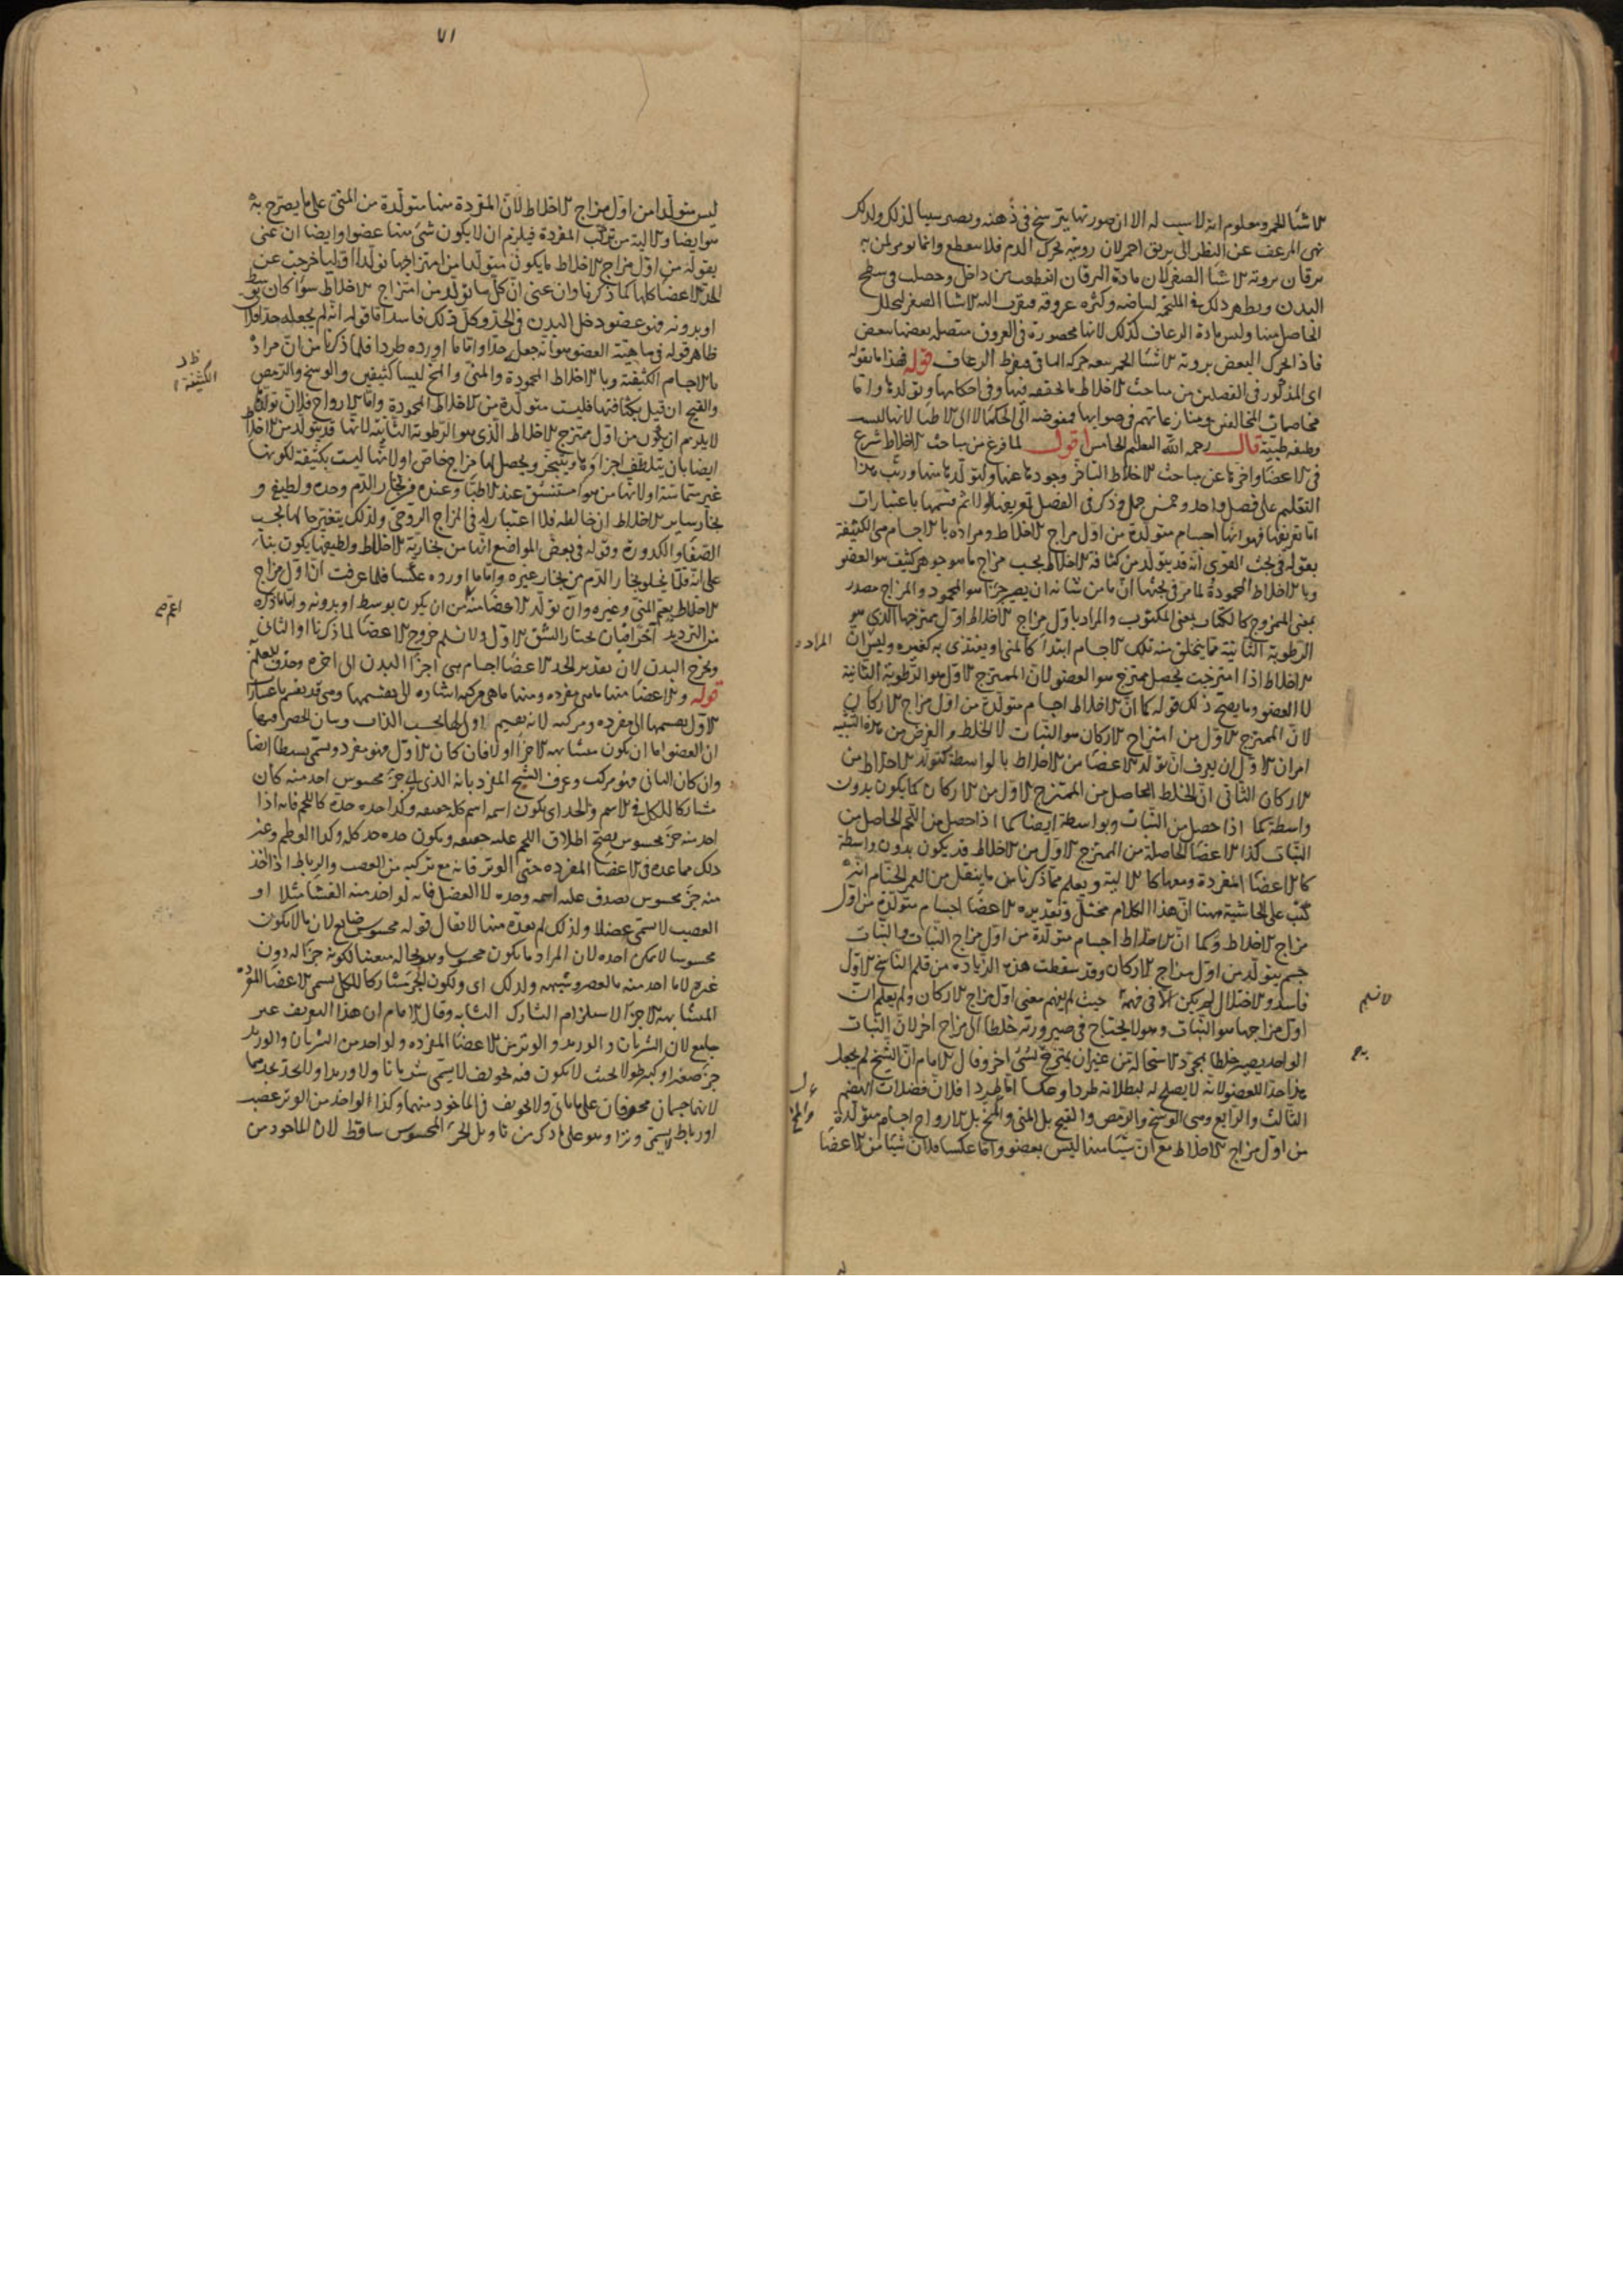 الاشياء الحمر ومعلوم انه لا سبب له الا ان صورتها يترسخ في ذهنه ويصير سببا لذلك ولذلك
نهى المرعف عن النظر الى بريق احمر لان رويته يحرك الدم فلا ينقطع وانما يومر لمن به
يرقان بروية الاشياء الصفر لان مادة اليرقان انقطعت من داخل وحصلت في سطح
البدن ويظهر ذلك في الملتحمة لبياضه وكثرة عروقه
الحاصل منها وليس مادة الرعاف كذلك لانها محصورة في العروق متصلة بعضها ببعض
فاذا تحرك البعض بروية الاشياء الحمر تبعه حركة الباقي فيفرط الرعاف قوله فهذا ما نقوله
اى المذكور في الفصلين من مباحث الاخلاط ما نحققه فيها وفي احكامها وتولدها واما
مخاصمات المخالفين ومنازعاتهم في صوابها فمفوضة الى الحكماء لا الى الاطباء لانها ليست
وظيفة طبية قال رحمه الله التعليم الخامس اقول لما فرغ من مباحث الاخلاط شرع
في الاعضاء واخرها عن مباحث الاخلاط لتاخر وجودها عنها ولتولدها منها ورتب هذا
التعليم على فصل واحد وخمس جمل وذكر في الفصل تعريفها اولا ثم قسمها باعتبارات
اما تعريفها فهو انها اجسام متولدة من اول مزاج الاخلاط ومراده بالاجسام هي الكثيفة
بقوله في بحث القوى انه قد يتولد من كثافة الاخلاط بحسب مزاج ما هو جوهر كثيف هو العضو
وبالاخلاط المحمودة لما مر في بحثها ان ما من شانه ان يصير جزءا هو المحمود والمزاج مصدر
بمعنى الممزوج كالكتاب بمعنى المكتوب والمراد باول مزاج الاخلاط اول ممتزجها الذي هو
الرطوبة الثانية مما يتخلق منه تلك الاجسام ابتداء كالمني او يغتذى به كغيره وليس ان المراد
الاخلاط اذا امتزجت يحصل ممتزج هو العضو لان الممتزج الاول هو الرطوبة الثانية
لا العضو ومما يصحح ذلك قوله كما ان الاخلاط اجسام متولدة من اول مزاج الاركان
لان الممتزج الاول من امتزاج الاركان هو النبات لا الخلط والغرض من هذه التشبيه
امران الاول ان يعرف ان تولد الاعضاء من الاخلاط بالواسطة كتولد الاخلاط من
الاركان الثاني ان الخلط الحاصل من الممتزج الاول من الاركان كما يكون بدون
واسطة كما اذا حصل من النبات وبواسطة ايضا كما اذا حصل من اللحم الحاصل من
النبات كذا الاعضاء الحاصلة من الممتزج الاول من الاخلاط قد يكون بدون واسطة
كالاعضاء المفردة ومعها كالآلية ويعلم مما ذكرنا من ما ينقل من انه
كتب على الحاشية ههنا ان هذا الكلام مختل وتقديره الاعضاء اجسام متولدة من اول
مزاج الاخلاط وكما ان الاخلاط اجسام متولدة من اول مزاج النبات والنبات
جسم يتولد من اول مزاج الاركان وقد سقطت هذه الزيادة من قلم الناسخ الاول
فاسد والاختلال لم يكن الا في فهمه حيث لم يفهم معنى اول مزاج الاركان ولم يعلم ان
لا نسلم
اول مزاجها هو النبات وهو لا يحتاج في صيرورته خلطا الى مزاج اخر لان النبات
الواحد يصير خلطا بمجرد الاستحالة من غير ان يمتزج بشيء اخر وقال الامام ان الشيخ لم يجعل
هذا حدا للعضو لانه لا يصلح له لبطلانه طردا وعكسا اما طردا فلان فضلات الهضم
الثالث والرابع وهى الوسخ والرمص والقيح بل المني والمخ بل الارواح اجسام متولدة
من اول مزاج الاخلاط مع ان شيئا منها ليس بعضو واما عكسا فلان شيئا من الاعضاء
٧١
ليس متولدا من اول مزاج الاخلاط لان المفردة منها متولدة من المني على ما يصرح به
هو ايضا والآلية من تركب المفردة فيلزم ان لا يكون شيء منها عضوا وايضا ان عنى
بقوله من اول مزاج الاخلاط ما يكون متولدا من امتزاجها تولدا اوليا خرجت عن
الحد الاعضاء كلها كما ذكرنا وان عنى ان كل ما تولد من امتزاج الاخلاط سواء كان بوسط
او بدونه فهو عضو دخل البدن في الحد وكل ذلك فاسد اما قوله انه لم يجعله حدا فلان
ظاهر قوله في ماهية العضو هو انه جعله حدا واما ما اورده طردا فلما ذكرنا من ان مراده
بالاجسام الكثيفة وبالاخلاط المحمودة والمني والمخ ليسا كثيفين والوسخ والرمص
الكثيفة
والقيح ان قيل بكثافتها فليست متولدة من الاخلاط المحمودة واما الارواح فلان تولدها
لا يلزم ان يكون من اول ممتزج الاخلاط الذي هو الرطوبة الثانية لانها قد يتولد من الاخلاط
ايضا بان يتلطف اجزاؤها ويتبخر ويحصل لها مزاج خاص او لانها ليست بكثيفة لكونها
غير متماسة او لانها من هواء مستنشق عند الاطباء وعنده من بخار الدم وحده ولطيفه و
بخار ساير الاخلاط ان خالطه فلا اعتبار له في المزاج الروحي ولذلك يتغير حالها بحسب
الصفاء والكدورة وقوله في بعض المواضع انها من بخارية الاخلاط ولطيفها يكون بناء
على انه قلما يخلو بخار الدم من بخار غيره واما ما اورده عكسا فلما عرفت ان اول مزاج
الاخلاط يعم المني وغيره وان تولد الاعضاء منه من ان يكون بوسط او بدونه واما ما ذكره
من الترديد آخرا فبان نختار الشق الاول ولا نسلم خروج الاعضاء لما ذكرنا او الثاني
ويخرج البدن لان تقدير الحد الاعضاء اجسام هي اجزاء البدن الى اخره وحذف للعلم به
قوله والاعضاء منها ما هي مفردة ومنها ما هي مركبة اشارة الى تقسيمها وهي قد يقسم باعتبارات
الاول تقسيمها الى مفردة ومركبة لانه تقسيم اولى لها بحسب الذات وبيان الحصر فيهما
ان العضو اما ان يكون متشابه الاجزاء او لا فان كان الاول فهو مفرد ويسمى بسيطا ايضا
وان كان الثاني فهو مركب وعرف الشيخ المفرد بانه الذي اي جزء محسوس اخذ منه كان
مشاركا للكل في الاسم والحد اى يكون اسمه اسم كله وحده حده كاللحم فانه اذا
اخذ منه جزء محسوس يصح اطلاق اللحم عليه ويكون حده حد كله وكذا العظم وغير
ذلك مما عده في الاعضاء المفردة حتى الوتر فانه مع تركبه من العصب والرباط اذا اخذ
منه جزء محسوس يصدق عليه اسمه وحده لا العضل فانه لو اخذ منه الغشاء مثلا او
العصب لا يسمى عضلا ولذلك لم يعده منها لا يقال قوله محسوس ضايع لان ما لا يكون
محسوسا لا يمكن اخذه لان المراد ما يكون محسوسا
غيره لا ما اخذ منه ولذلك اى ولكون الجزء مشاركا للكل يسمى الاعضاء المفردة
المتشابهة الاجزاء لاستلزام التشارك التشابه وقال الامام ان هذا التعريف غير
جامع لان الشريان والوريد والوتر من الاعضاء المفردة ولو اخذ من الشريان والوريد
جزء صغيرا وكبير طولا بحيث لا يكون فيه تجويف لا يسمى شريانا ولا وريدا ولا يحد بحدهما
لانهما جسمان مجوفان على ما ياتى ولا تجويف في الماخوذ منهما وكذا لو اخذ من الوتر عصب
او رباط لا يسمى وترا وهو على ما ذكر من تاويل الجزء المحسوس ساقط لان الماخوذ من